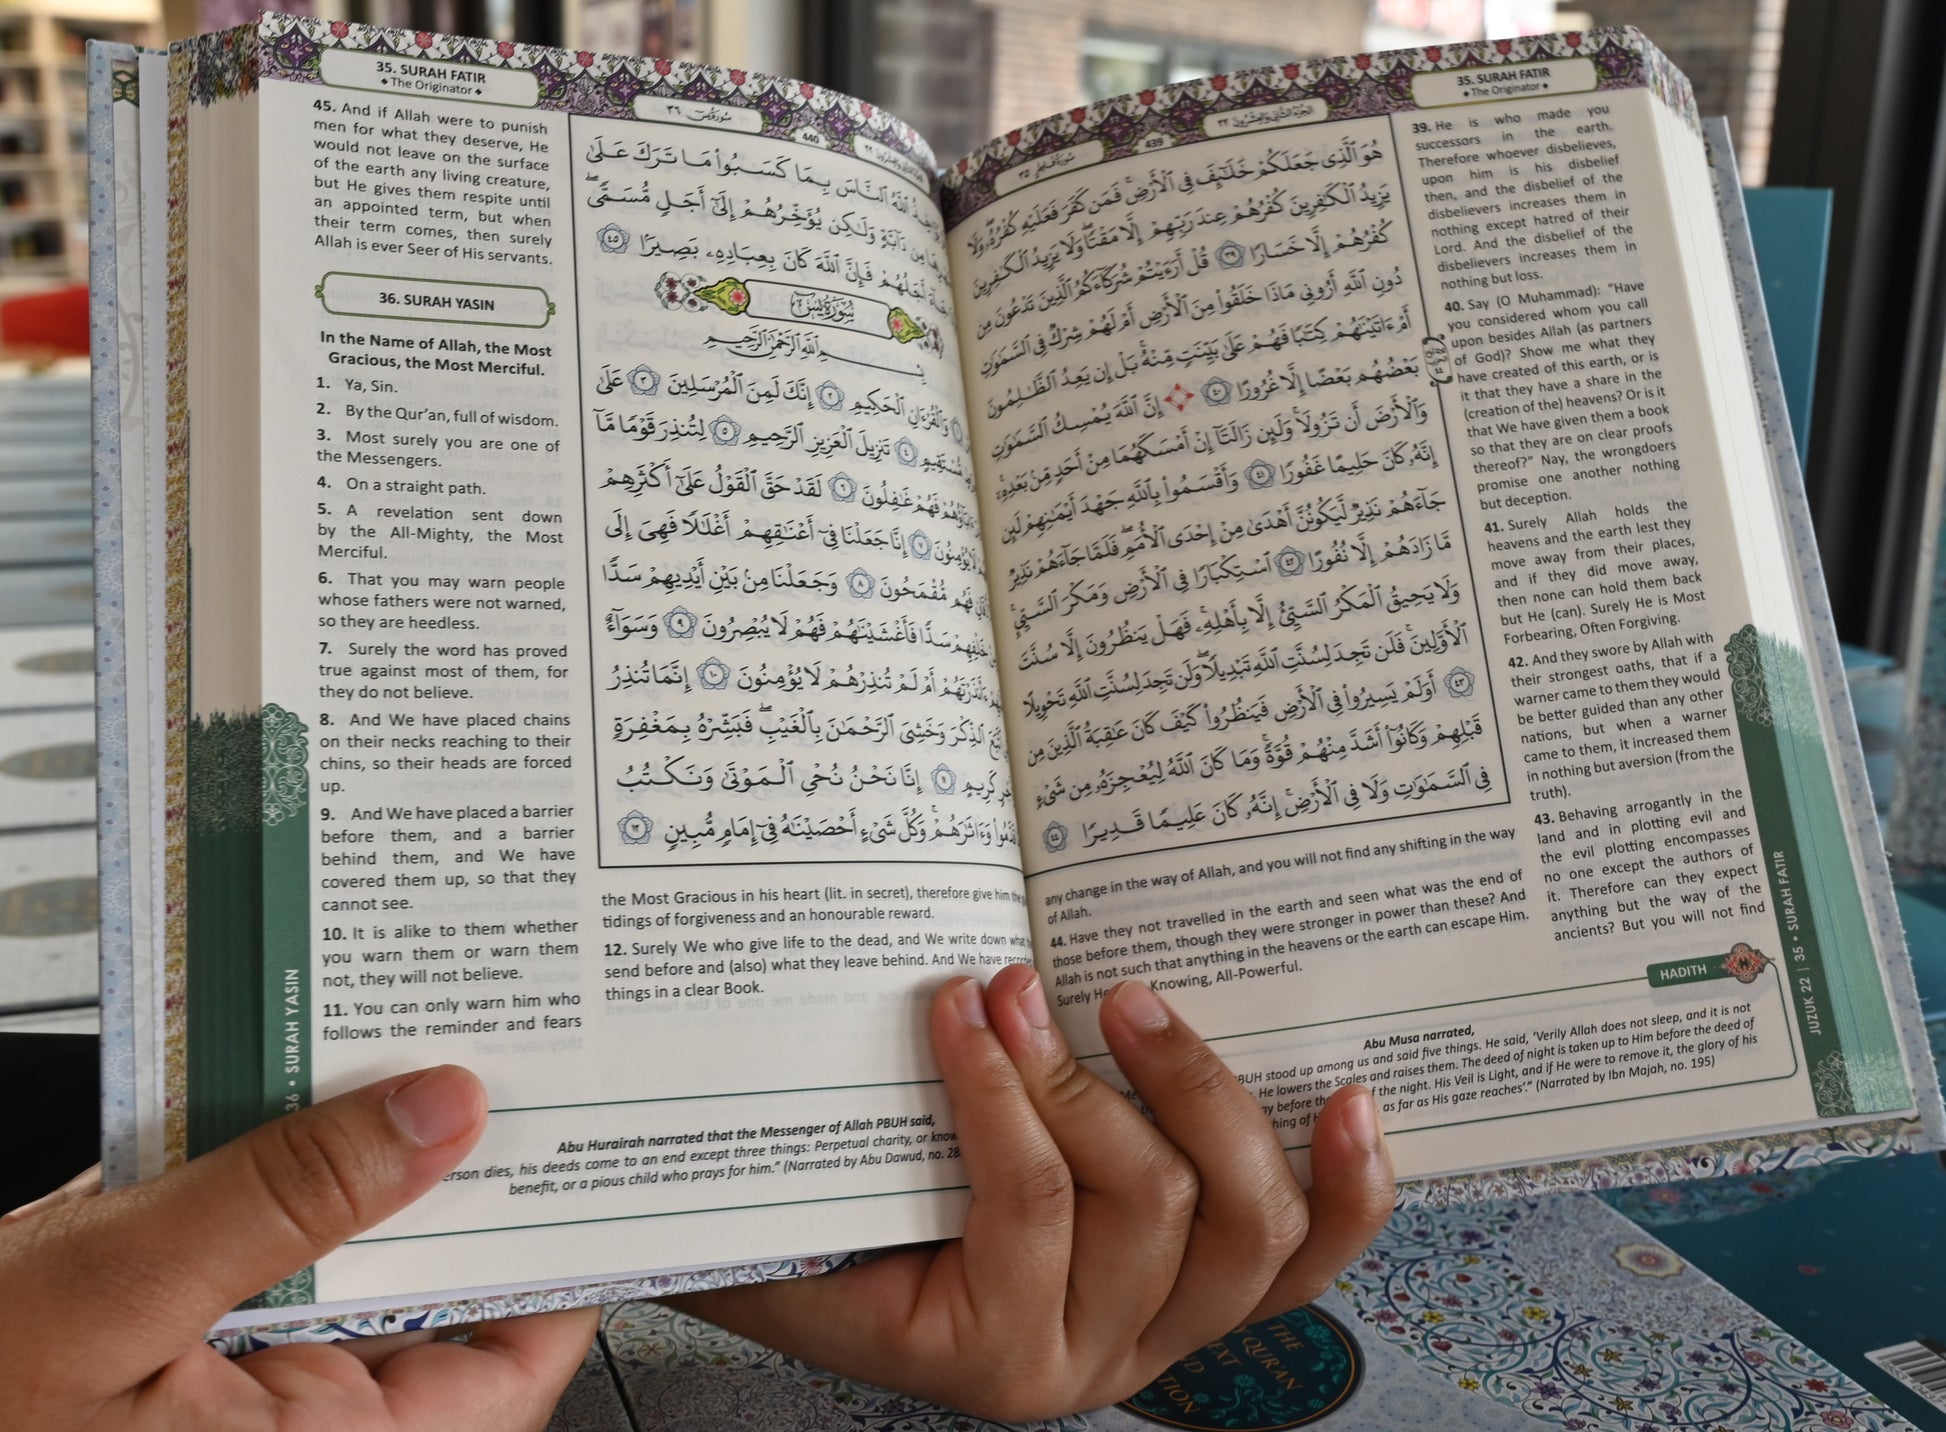 35. SURAH FATIR
The Originator
الجزء الثاني والعشرون ٢٢
439
سورة فاطر ٣٥
هُوَ الَّذِي جَعَلَكُمْ خَلَٰٓئِفَ فِي الْأَرْضِ ۚ فَمَن كَفَرَ فَعَلَيْهِ كُفْرُهُۥ ۖ وَلَا
يَزِيدُ الْكَٰفِرِينَ كُفْرُهُمْ عِندَ رَبِّهِمْ إِلَّا مَقْتًا ۖ وَلَا يَزِيدُ الْكَٰفِرِينَ
كُفْرُهُمْ إِلَّا خَسَارًا ٣٩ قُلْ أَرَءَيْتُمْ شُرَكَآءَكُمُ الَّذِينَ تَدْعُونَ مِن
دُونِ اللَّهِ أَرُونِي مَاذَا خَلَقُوا۟ مِنَ الْأَرْضِ أَمْ لَهُمْ شِرْكٌ فِي السَّمَٰوَٰتِ
أَمْ ءَاتَيْنَٰهُمْ كِتَٰبًا فَهُمْ عَلَىٰ بَيِّنَتٍ مِّنْهُ ۚ بَلْ إِن يَعِدُ الظَّٰلِمُونَ
بَعْضُهُم بَعْضًا إِلَّا غُرُورًا ٤٠ إِنَّ اللَّهَ يُمْسِكُ السَّمَٰوَٰتِ
وَالْأَرْضَ أَن تَزُولَا ۚ وَلَئِن زَالَتَآ إِنْ أَمْسَكَهُمَا مِنْ أَحَدٍ مِّنۢ بَعْدِهِۦٓ ۚ
إِنَّهُۥ كَانَ حَلِيمًا غَفُورًا ٤١ وَأَقْسَمُوا۟ بِاللَّهِ جَهْدَ أَيْمَٰنِهِمْ لَئِن
جَآءَهُمْ نَذِيرٌ لَّيَكُونُنَّ أَهْدَىٰ مِنْ إِحْدَى الْأُمَمِ ۖ فَلَمَّا جَآءَهُمْ نَذِيرٌ
مَّا زَادَهُمْ إِلَّا نُفُورًا ٤٢ اسْتِكْبَارًا فِي الْأَرْضِ وَمَكْرَ السَّيِّئِ ۚ
وَلَا يَحِيقُ الْمَكْرُ السَّيِّئُ إِلَّا بِأَهْلِهِۦ ۚ فَهَلْ يَنظُرُونَ إِلَّا سُنَّتَ
الْأَوَّلِينَ ۚ فَلَن تَجِدَ لِسُنَّتِ اللَّهِ تَبْدِيلًا ۖ وَلَن تَجِدَ لِسُنَّتِ اللَّهِ تَحْوِيلًا
٤٣ أَوَلَمْ يَسِيرُوا۟ فِي الْأَرْضِ فَيَنظُرُوا۟ كَيْفَ كَانَ عَٰقِبَةُ الَّذِينَ مِن
قَبْلِهِمْ وَكَانُوٓا۟ أَشَدَّ مِنْهُمْ قُوَّةً ۚ وَمَا كَانَ اللَّهُ لِيُعْجِزَهُۥ مِن شَيْءٍ
فِي السَّمَٰوَٰتِ وَلَا فِي الْأَرْضِ ۚ إِنَّهُۥ كَانَ عَلِيمًا قَدِيرًا ٤٤
39. He is who made you
successors in the earth.
Therefore whoever disbelieves,
upon him is his disbelief
then, and the disbelief of the
disbelievers increases them in
nothing except hatred of their
Lord. And the disbelief of the
disbelievers increases them in
nothing but loss.
40. Say (O Muhammad): “Have
you considered whom you call
upon besides Allah (as partners
of God)? Show me what they
have created of this earth, or is
it that they have a share in the
(creation of the) heavens? Or is it
that We have given them a book
so that they are on clear proofs
thereof?” Nay, the wrongdoers
promise one another nothing
but deception.
41. Surely Allah holds the
heavens and the earth lest they
move away from their places,
and if they did move away,
then none can hold them back
but He (can). Surely He is Most
Forbearing, Often Forgiving.
42. And they swore by Allah with
their strongest oaths, that if a
warner came to them they would
be better guided than any other
nations, but when a warner
came to them, it increased them
in nothing but aversion (from the
truth).
43. Behaving arrogantly in the
land and in plotting evil and
the evil plotting encompasses
no one except the authors of
it. Therefore can they expect
anything but the way of the
ancients? But you will not find
any change in the way of Allah, and you will not find any shifting in the way
of Allah.
44. Have they not travelled in the earth and seen what was the end of
those before them, though they were stronger in power than these? And
Allah is not such that anything in the heavens or the earth can escape Him.
Surely He Knowing, All-Powerful.
HADITH
Abu Musa narrated,
PBUH stood up among us and said five things. He said, ‘Verily Allah does not sleep, and it is not
He lowers the Scales and raises them. The deed of night is taken up to Him before the deed of
before the of the night. His Veil is Light, and if He were to remove it, the glory of his
as far as His gaze reaches’.” (Narrated by Ibn Majah, no. 195)
JUZUK 22 | 35 • SURAH FATIR
35. SURAH FATIR
The Originator
سورة يس ٣٦
440
45. And if Allah were to punish
men for what they deserve, He
would not leave on the surface
of the earth any living creature,
but He gives them respite until
an appointed term, but when
their term comes, then surely
Allah is ever Seer of His servants.
36. SURAH YASIN
In the Name of Allah, the Most
Gracious, the Most Merciful.
1. Ya, Sin.
2. By the Qur’an, full of wisdom.
3. Most surely you are one of
the Messengers.
4. On a straight path.
5. A revelation sent down
by the All-Mighty, the Most
Merciful.
6. That you may warn people
whose fathers were not warned,
so they are heedless.
7. Surely the word has proved
true against most of them, for
they do not believe.
8. And We have placed chains
on their necks reaching to their
chins, so their heads are forced
up.
9. And We have placed a barrier
before them, and a barrier
behind them, and We have
covered them up, so that they
cannot see.
10. It is alike to them whether
you warn them or warn them
not, they will not believe.
11. You can only warn him who
follows the reminder and fears
اللَّهُ النَّاسَ بِمَا كَسَبُوا۟ مَا تَرَكَ عَلَىٰ
مِن دَآبَّةٍ وَلَٰكِن يُؤَخِّرُهُمْ إِلَىٰٓ أَجَلٍ مُّسَمًّى ۖ
أَجَلُهُمْ فَإِنَّ اللَّهَ كَانَ بِعِبَادِهِۦ بَصِيرًۢا ٤٥
سُورَةُ يسٓ
بِسْمِ اللَّهِ الرَّحْمَٰنِ الرَّحِيمِ
وَالْقُرْءَانِ الْحَكِيمِ ٢ إِنَّكَ لَمِنَ الْمُرْسَلِينَ ٣ عَلَىٰ
مُّسْتَقِيمٍ ٤ تَنزِيلَ الْعَزِيزِ الرَّحِيمِ ٥ لِتُنذِرَ قَوْمًا مَّآ
ءَابَآؤُهُمْ فَهُمْ غَٰفِلُونَ ٦ لَقَدْ حَقَّ الْقَوْلُ عَلَىٰٓ أَكْثَرِهِمْ
لَا يُؤْمِنُونَ ٧ إِنَّا جَعَلْنَا فِيٓ أَعْنَٰقِهِمْ أَغْلَٰلًا فَهِيَ إِلَى
فَهُم مُّقْمَحُونَ ٨ وَجَعَلْنَا مِنۢ بَيْنِ أَيْدِيهِمْ سَدًّا
خَلْفِهِمْ سَدًّا فَأَغْشَيْنَٰهُمْ فَهُمْ لَا يُبْصِرُونَ ٩ وَسَوَآءٌ
ءَأَنذَرْتَهُمْ أَمْ لَمْ تُنذِرْهُمْ لَا يُؤْمِنُونَ ١٠ إِنَّمَا تُنذِرُ
الذِّكْرَ وَخَشِيَ الرَّحْمَٰنَ بِالْغَيْبِ ۖ فَبَشِّرْهُ بِمَغْفِرَةٍ
كَرِيمٍ ١١ إِنَّا نَحْنُ نُحْيِ الْمَوْتَىٰ وَنَكْتُبُ
وَءَاثَٰرَهُمْ ۚ وَكُلَّ شَيْءٍ أَحْصَيْنَٰهُ فِيٓ إِمَامٍ مُّبِينٍ ١٢
the Most Gracious in his heart (lit. in secret), therefore give him the
tidings of forgiveness and an honourable reward.
12. Surely We who give life to the dead, and We write down what
send before and (also) what they leave behind. And We have
things in a clear Book.
Abu Hurairah narrated that the Messenger of Allah PBUH said,
dies, his deeds come to an end except three things: Perpetual charity, or
benefit, or a pious child who prays for him.” (Narrated by Abu Dawud, no.
36 • SURAH YASIN
THE
QURAN